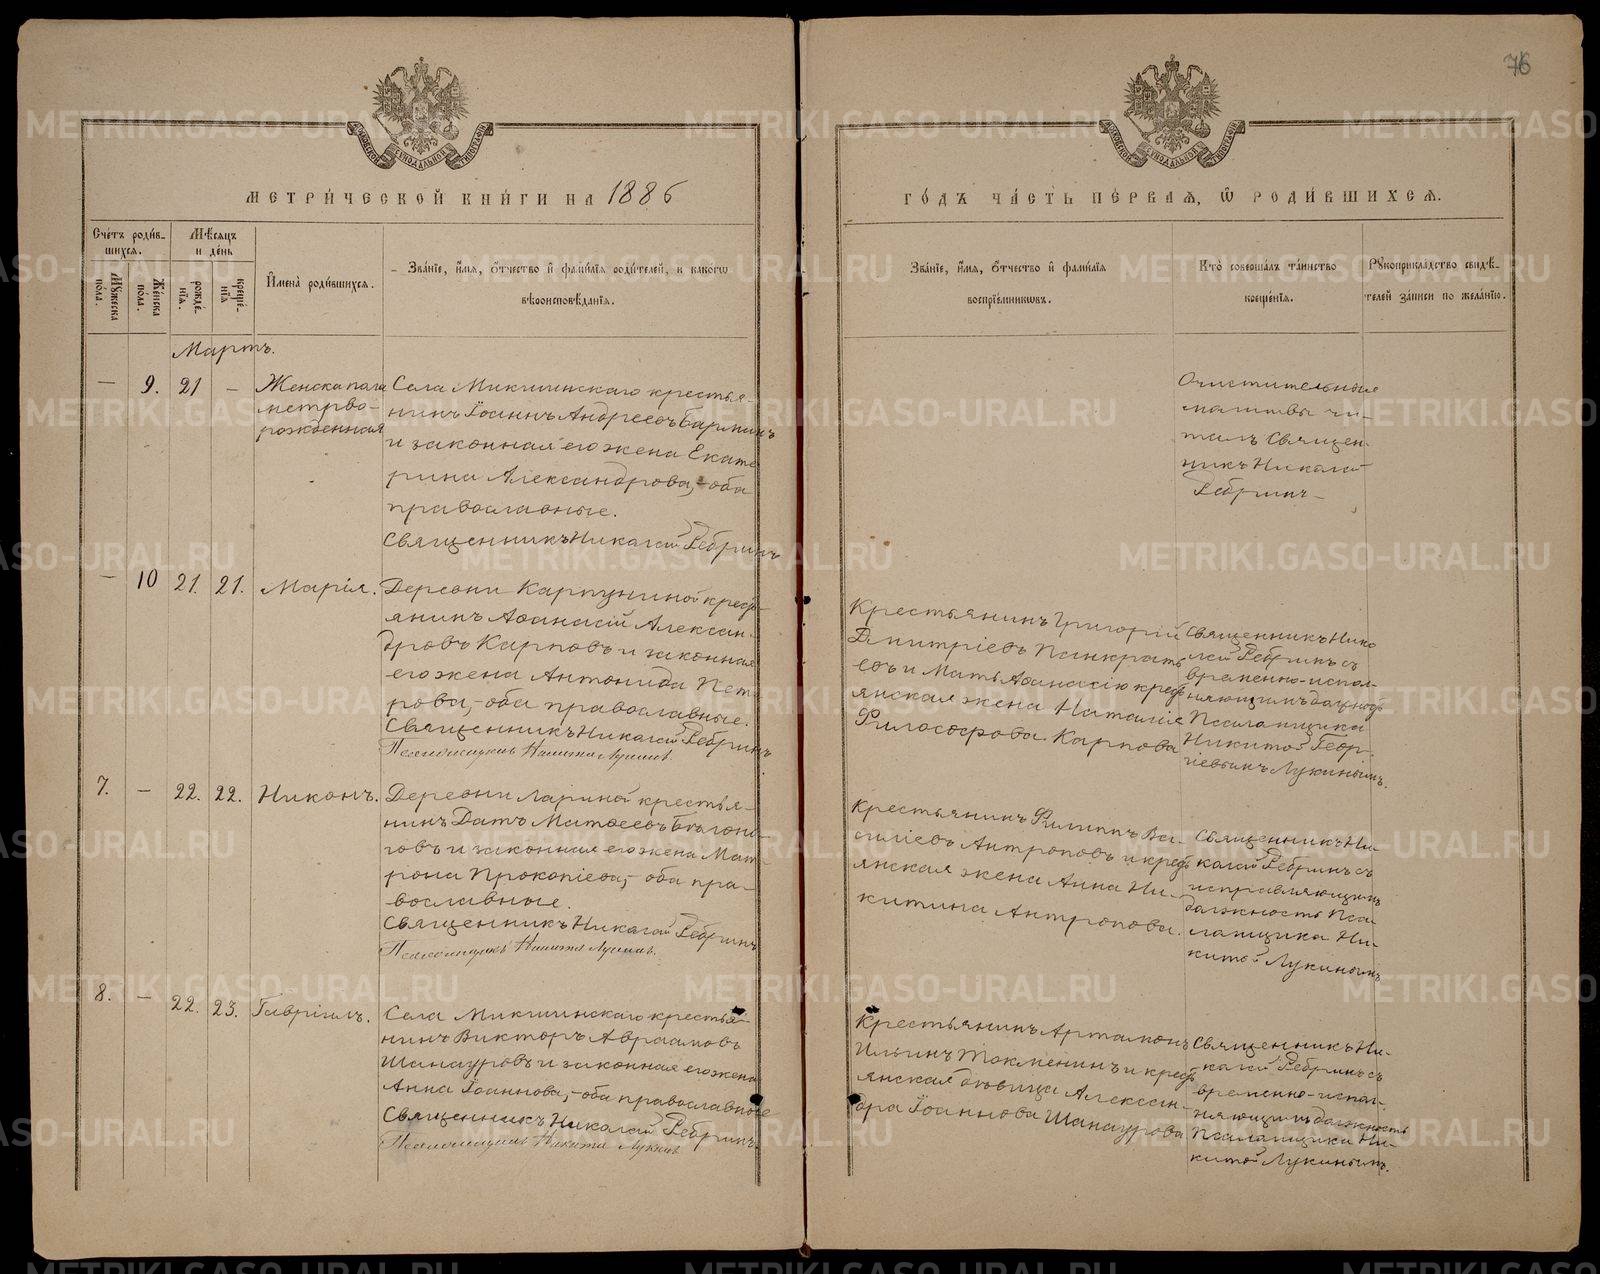 76
МЕТРИ́ЧЕСКОЙ КНИ́ГИ НА 1886
ГО́ДЪ ЧА́СТЬ ПЕ́РВАѦ, Ѽ РОДИ́ВШИХСѦ.
Сче́тъ роди́в-
шихсѧ.
Мꙋ́жеска пола.
Же́нска пола.
Мѣ́сѧцъ
и де́нь
рожде́-
нїѧ.
креще́-
нїѧ
И҆мена̀ роди́вшихсѧ.
Зва́нїе, и҆́мѧ, ѻ҆́тчество и҆ фами́лїѧ роди́телей, и какѡ́гѡ
вѣроисповѣ́данїѧ.
Зва́нїе, и҆́мѧ, ѻ҆́тчество и҆ фами́лїѧ
воспрїе́мникѡвъ.
Кто̀ соверша́лъ та́инство
креще́нїѧ.
Рꙋкоприкла́дство свидѣ́-
телей за́писи по жела́нїю.
Мартъ.
— 9. 21 —
Женска пола
мертво-
рожденная
Села Микшинскаго крестья-
нинъ Іоаннъ Андреевъ Барминъ
и законная его жена Екате
рина Александрова, - оба
православные.
Священникъ Николай Ребринъ
Очистительные
молитвы чи-
талъ Священ-
никъ Николай
Ребринъ
— 10 21. 21.
Марія.
Деревни Карпуниной крест-
янинъ Афанасій Алексан-
дровъ Карповъ и законная
его жена Антонида Пет
рова, - оба православные.
Священникъ Николай Ребринъ
Псаломщикъ Никита Лукинъ.
Крестьянинъ Григорій
Дмитріевъ Панкрать
евъ и Мать Афанасію крест
янская жена Наталія
Философова Карпова
Священникъ Нико
лай Ребринъ съ
временно-испол-
няющимъ должность
Псаломщика
Никитой Геор-
гіевымъ Лукинымъ.
7. — 22. 22.
Никонъ.
Деревни Лариной крестья-
нинъ Датъ Матфеевъ Бѣлоно-
говъ и законная его жена Мат-
рона Прокопіева, - оба пра-
вославные.
Священникъ Николай Ребринъ
Псаломщикъ Никита Лукинъ.
Крестьянинъ Филиппъ Ва-
силіевъ Антроповъ и крест
янская жена Анна Ни-
китина Антропова.
Священникъ Ни-
колай Ребринъ съ
исправляющимъ
должность Пса-
ломщика Ни-
китой Лукинымъ
8. — 22. 23.
Гавріилъ.
Села Микшинскаго крестья-
нинъ Викторъ Авраамовъ
Шанауровъ и законная его жена
Анна Іоаннова, - оба православные
Священникъ Николай Ребринъ.
Псаломщикъ Никита Лукинъ
Крестьянинъ Артамонъ
Ильинъ Токменинъ и крест
янская девица Алексан-
дра Іоаннова Шанаурова
Священникъ Ни-
колай Ребринъ съ
временно-испол-
няющимъ должность
Псаломщика Ни-
китой Лукинымъ.
METRIKI.GASO-URAL.RU